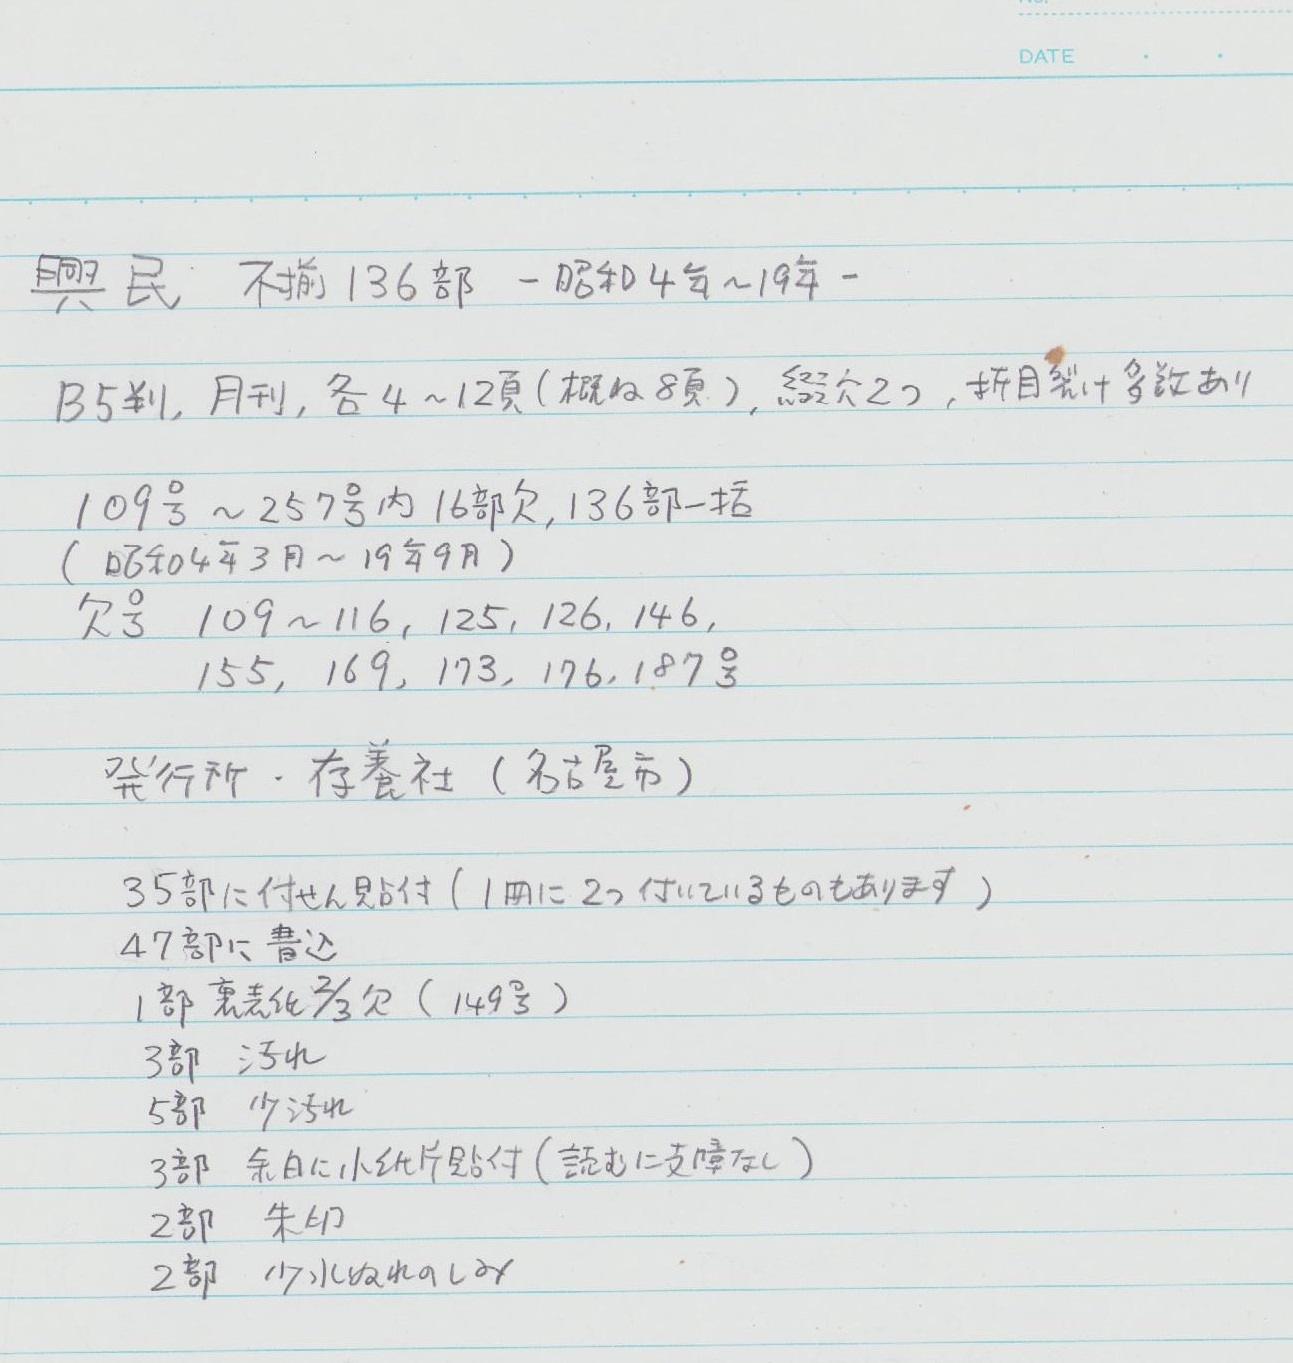 DATE
興民 不揃136部 -昭和4年~19年-
B5判, 月刊, 各4~12頁(概ね8頁), 綴穴2つ, 折目裂け多数あり
109号~257号内16部欠, 136部一括
(昭和4年3月~19年9月)
欠号 109~116, 125, 126, 146,
155, 169, 173, 176, 187号
発行所・存養社(名古屋市)
35部に付せん貼付(1冊に2つ付いているものもあります)
47部に書込
1部裏表紙2/3欠(149号)
3部 汚れ
5部 少汚れ
3部 余白に小紙片貼付(読むに支障なし)
2部 朱印
2部 少水ぬれのしみ